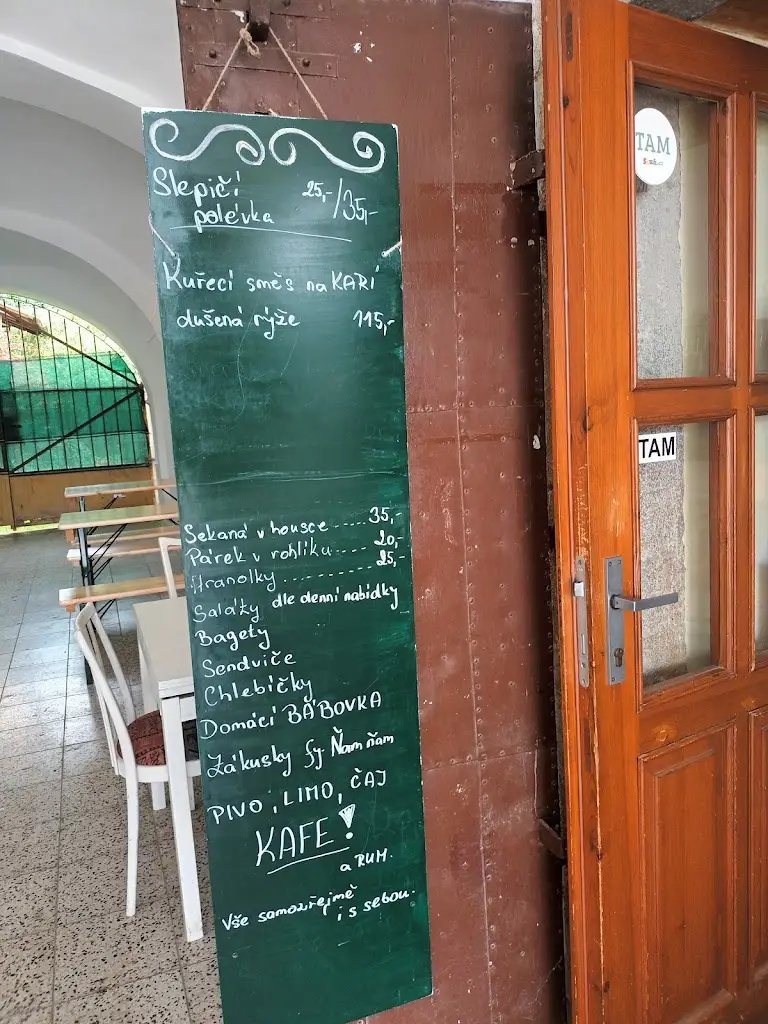 Slepičí 25,-/35,-
polévka
Kuřecí směs na KARÍ
dušená rýže 115,-
Sekaná v housce ..... 35,-
Párek v rohlíku .... 20,-
Hranolky ............ 25,-
Saláty dle denní nabídky
Bagety
Sendviče
Chlebíčky
Domácí BÁBOVKA
Zákusky fy Ňam ňam
PIVO, LIMO, ČAJ
KAFE!
a RUM.
Vše samozřejmě
i s sebou.
TAM
TAM